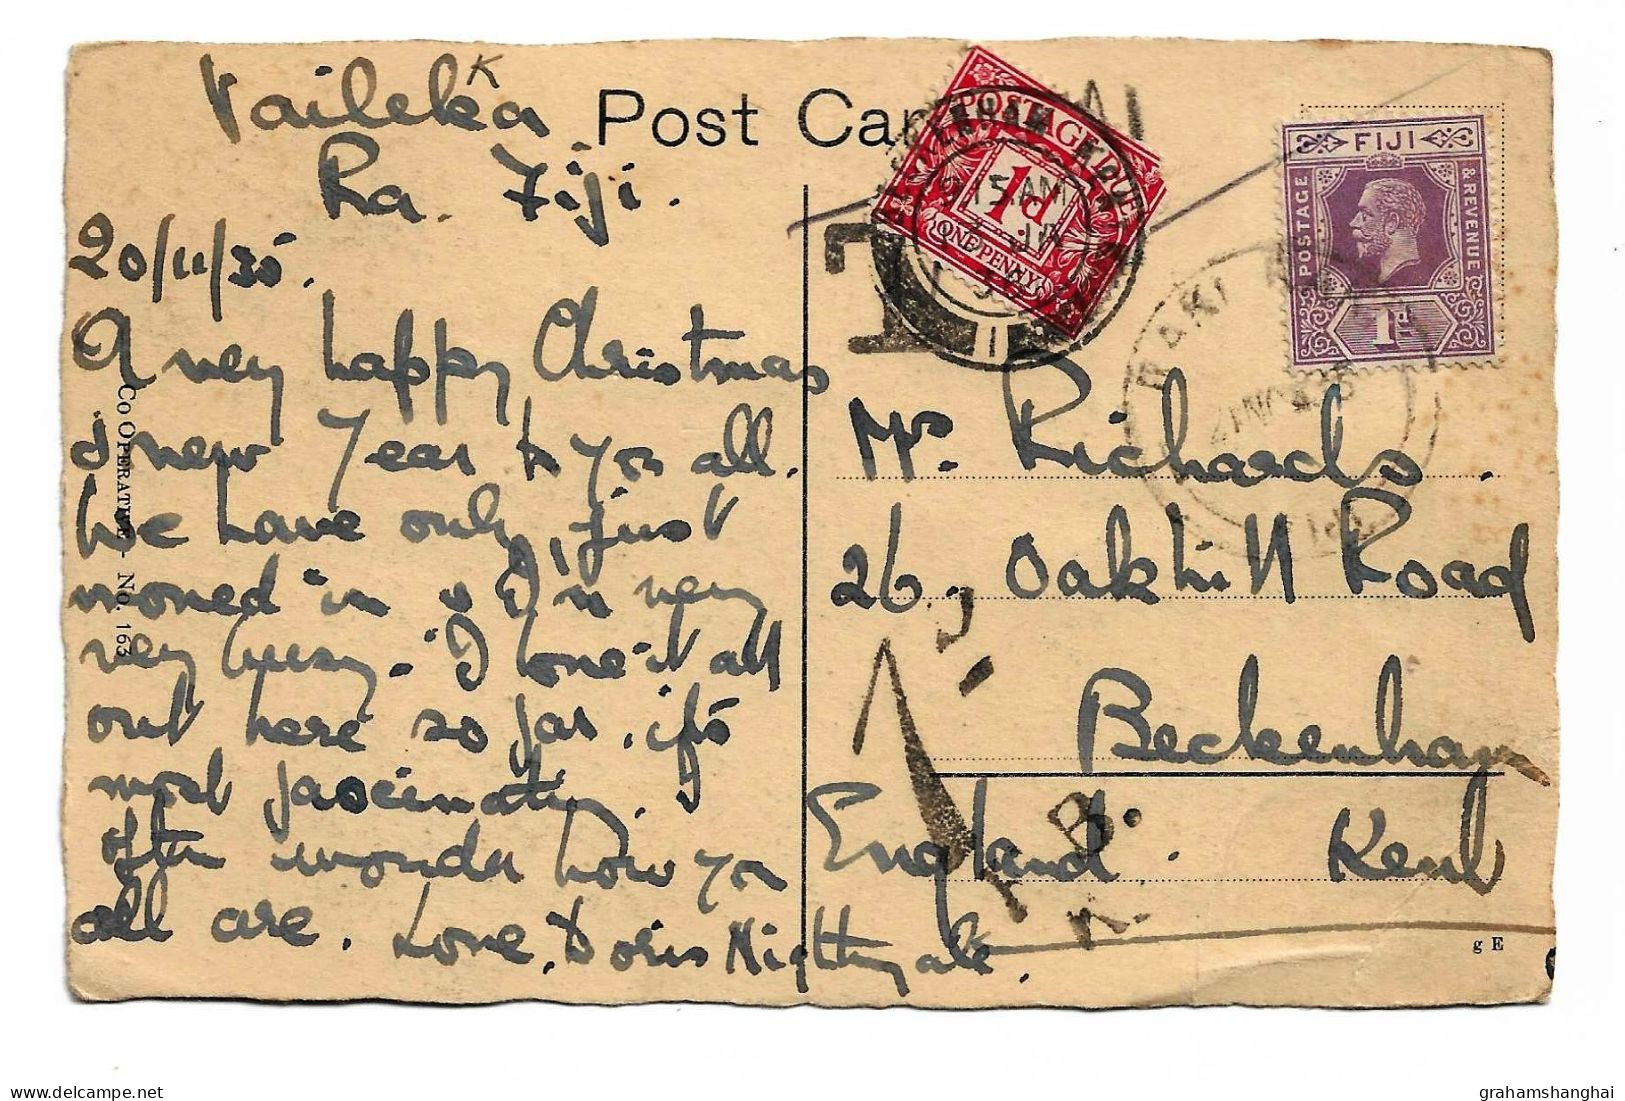 Vaileka
K
Ra. Fiji.
20/11/35.
A very happy Christmas
& new Year to you all.
We have only just
moved in & I'm very
very busy. I love it all
out here so far, it's
most fascinating. I
often wonder how you
all are. Love, Doris Nightingale.
Post Card
Co Operative - No. 163
POSTAGE DUE
1d
ONE PENNY
BECKENHAM KENT
9 15 AM
1
T
FIJI
POSTAGE & REVENUE
1d
RAKI RAKI
21 NOV 35
FIJI
Mrs. Richards.
26, Oakhill Road
Beckenham
England. Kent
1D.
F.B.
K.
g E
grahamshanghai